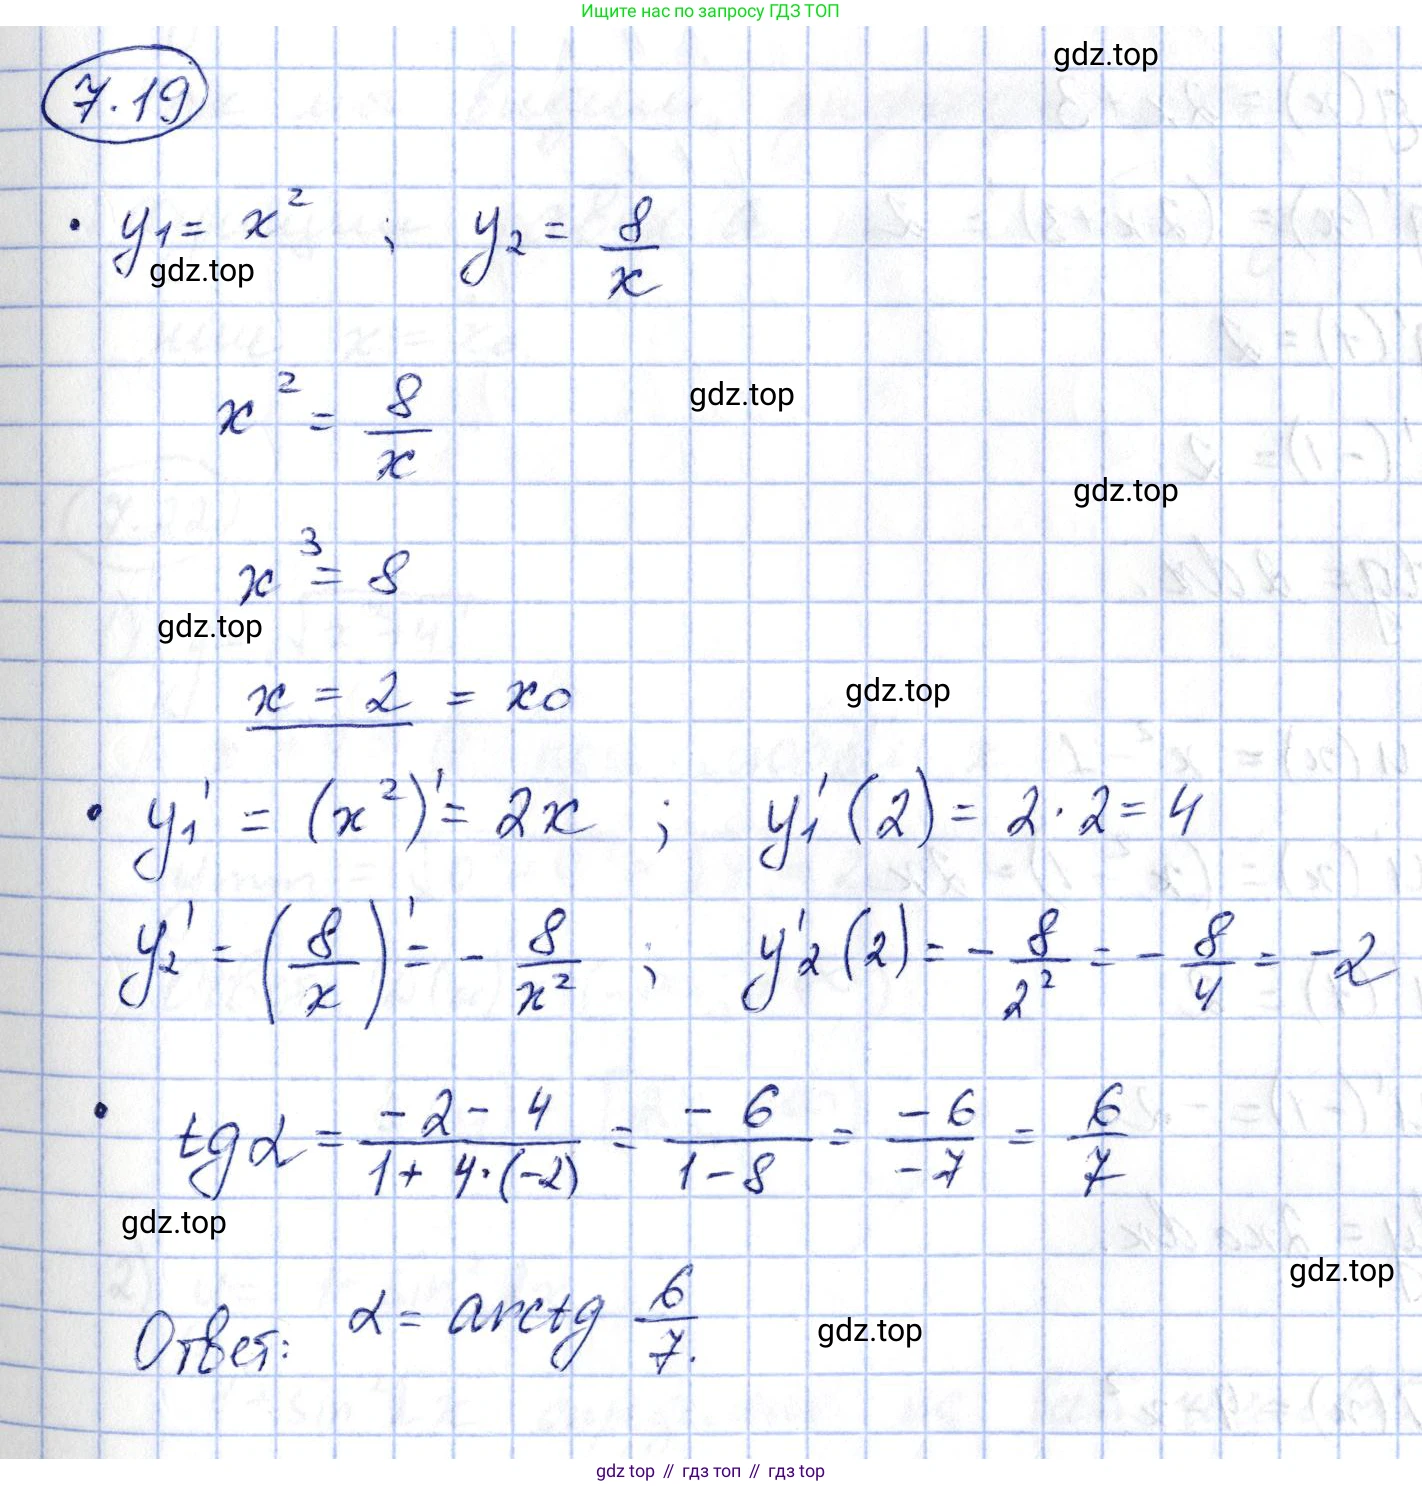 Ищите нас по запросу ГДЗ ТОП
gdz.top
7.19
• y₁ = x² ; y₂ = 8/x
gdz.top
x² = 8/x
gdz.top
gdz.top
x³ = 8
gdz.top
x = 2 = x₀
gdz.top
• y₁' = (x²)' = 2x ; y₁'(2) = 2·2 = 4
y₂' = (8/x)' = - 8/x² ; y'₂(2) = - 8/2² = - 8/4 = -2
• tg α = (-2 - 4)/(1 + 4·(-2)) = (-6)/(1-8) = (-6)/(-7) = 6/7
gdz.top
gdz.top
Ответ: α = arctg 6/7.
gdz.top
gdz top // гдз топ // гдз top